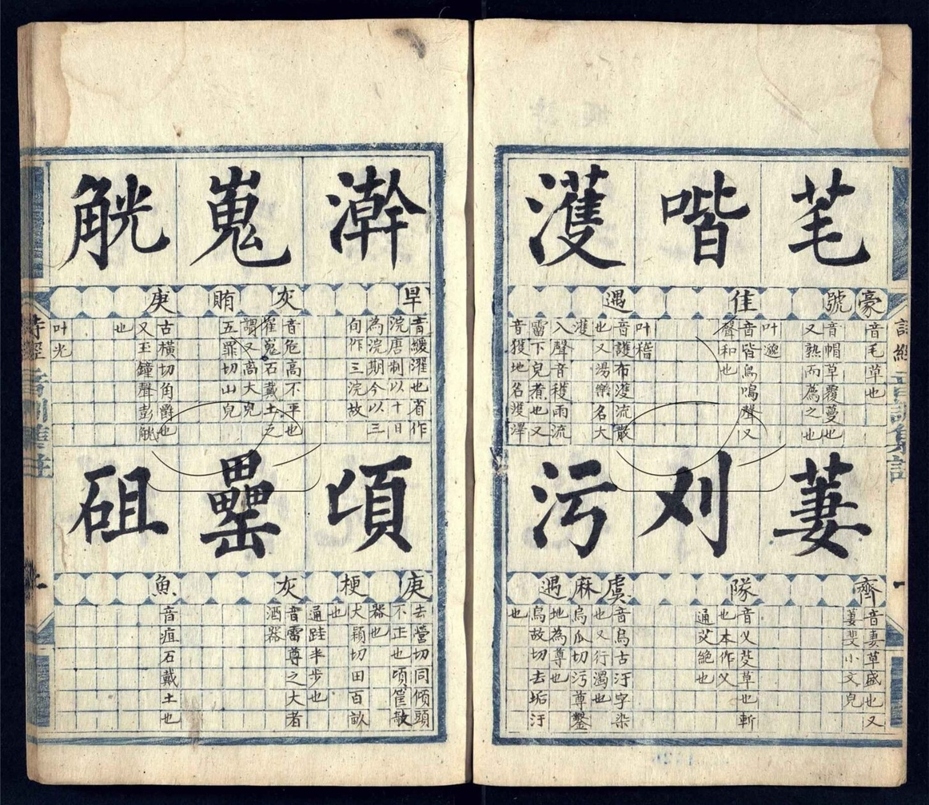 芼
豪
號
音毛草也
音帽草覆蔓也
又熟而為之也
喈
佳
音皆鳥鳴聲又
聲和也
叶
濩
遇
叶稽
音護布濩流散
也又湯樂名大
濩
入聲音穫雨流
霤下皃煮也又
音獲地名濩澤
萋
齊
音妻草盛也又
萋斐小文皃
刈
隊
音乂芟草也斬
也本作乂
通艾絶也
污
虞
麻
遇
音烏古汙字染
也又行濁也
烏瓜切污尊鑿
地為尊也
烏故切去垢汙
也
詩經
澣
旱
音緩濯也省作
浣唐制以十日
為浣期今以三
旬作三浣故
嵬
灰
賄
音危高不平也
崔嵬石戴土之
謂又高大皃
五罪切山皃
觥
庚
古橫切角爵也
又玉鐘聲彭觥
也
叶光
頃
庚
梗
去營切同傾頭
不正也頃筐攲
器也
犬穎切田百畝
也
通跬半步也
罍
灰
音雷尊之大者
酒器
砠
魚
音疽石戴土也
詩經